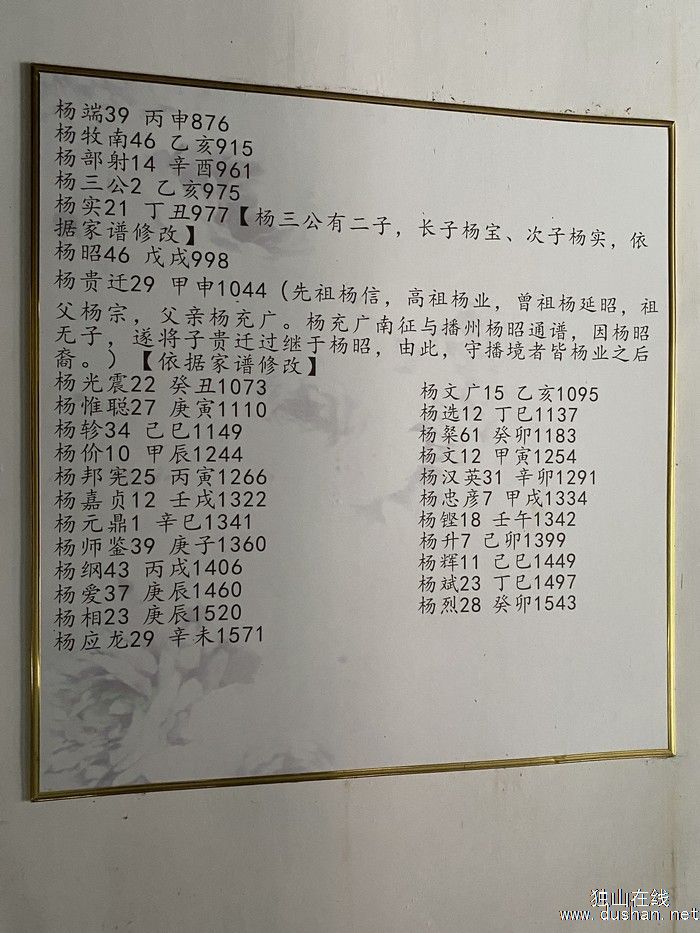 杨端39 丙申876
杨牧南46 乙亥915
杨部射14 辛酉961
杨三公2 乙亥975
杨实21 丁丑977【杨三公有二子，长子杨宝、次子杨实，依
据家谱修改】
杨昭46 戊戌998
杨贵迁29 甲申1044（先祖杨信，高祖杨业，曾祖杨延昭，祖
父杨宗，父亲杨充广。杨充广南征与播州杨昭通谱，因杨昭
无子，遂将子贵迁过继于杨昭，由此，守播境者皆杨业之后
裔。）【依据家谱修改】
杨光震22 癸丑1073
杨惟聪27 庚寅1110
杨轸34 己巳1149
杨价10 甲辰1244
杨邦宪25 丙寅1266
杨嘉贞12 壬戌1322
杨元鼎1 辛巳1341
杨师鉴39 庚子1360
杨纲43 丙戌1406
杨爱37 庚辰1460
杨相23 庚辰1520
杨应龙29 辛未1571
杨文广15 乙亥1095
杨选12 丁巳1137
杨粲61 癸卯1183
杨文12 甲寅1254
杨汉英31 辛卯1291
杨忠彦7 甲戌1334
杨铿18 壬午1342
杨升7 己卯1399
杨辉11 己巳1449
杨斌23 丁巳1497
杨烈28 癸卯1543
独山在线
www.dushan.net